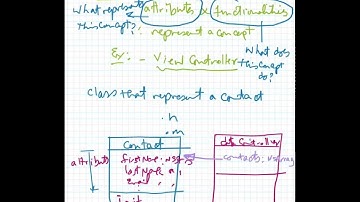 What represents attributes & functionalities
this concept? represent a concept
Ex: - View Controller What does
this concept
do?
class that represent a contact
.h
.m
contact
attributes firstName: NSS contacts: NSArray
lastName
email
init